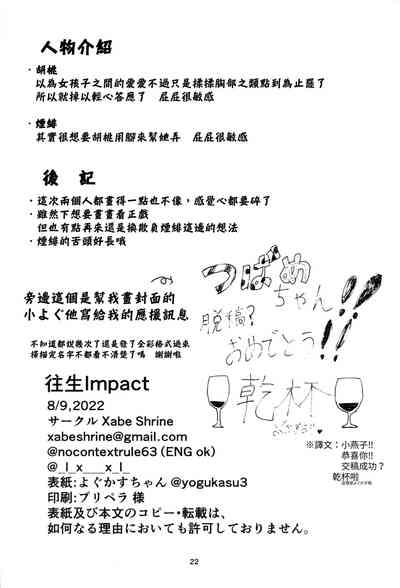 人物介紹
・胡桃
以為女孩子之間的愛愛不過只是揉揉胸部之類點到為止罷了
所以就掉以輕心答應了　屁屁很敏感
・煙緋
其實很想要胡桃用腳來幫她弄　屁屁很敏感
後 記
・這次兩個人都畫得一點也不像，感覺心都要碎了
・雖然下想要畫畫看正戲
但也有點再來還是換欺負煙緋這邊的想法
・煙緋的舌頭好長哦
旁邊這個是幫我畫封面的
小よぐ他寫給我的應援訊息
不知道都說幾次了這是發了全彩格式過來
掃描完名字不都看不清楚了嗎　謝謝啦
つばめ
ちゃん
脱稿?
おめでとう!!
乾杯
※譯文：小燕子!!
恭喜你!!
交稿成功？
乾杯啦
往生Impact
8/9,2022
サークル Xabe Shrine
xabeshrine@gmail.com
@nocontextrule63 (ENG ok)
@_l_x___x_l_
表紙:よぐかすちゃん @yogukasu3
印刷:プリペラ 様
表紙及び本文のコピー・転載は、
如何なる理由においても許可しておりません。
22